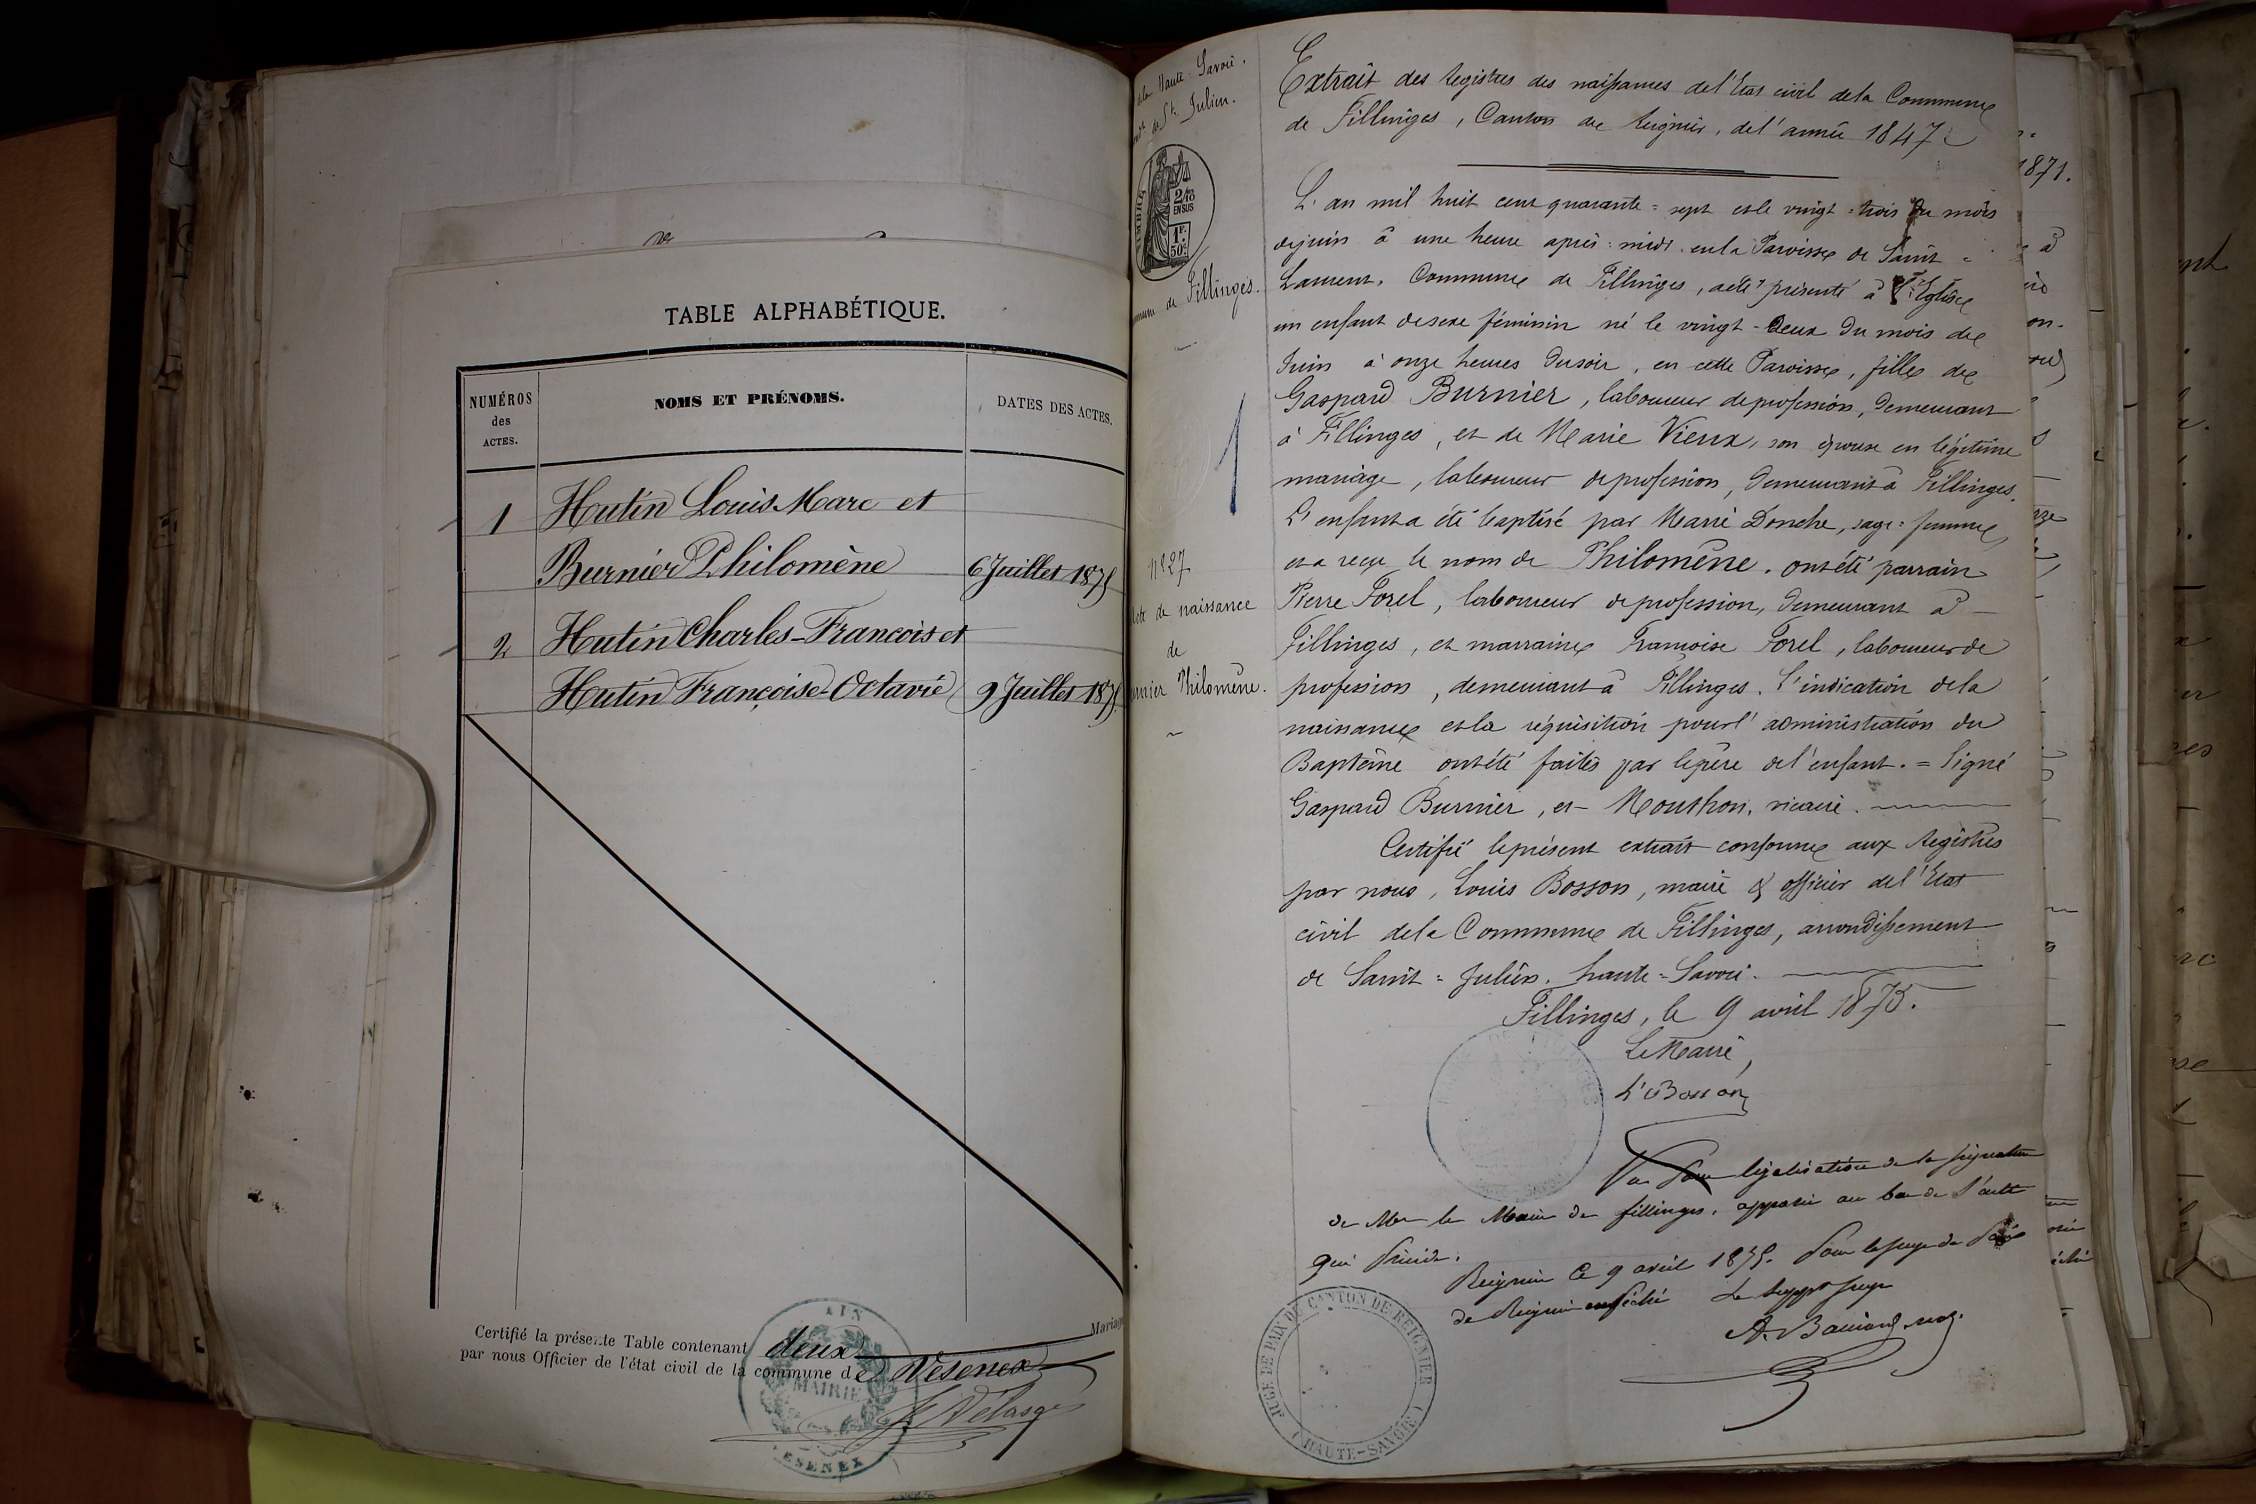 TABLE ALPHABÉTIQUE.
NUMÉROS des ACTES.
NOMS ET PRÉNOMS.
DATES DES ACTES.
1 Hutin Louis Marc et
Burnier Philomène 6 Juillet 1875
2 Hutin Charles-François et
Hutin Françoise-Octavie 9 Juillet 1875
Mariag
Certifié la présente Table contenant deux
par nous Officier de l'état civil de la commune de Vesenex
AIN
MAIRIE
ESENEX
de la Haute-Savoie.
de St Julien.
TIMBRE
2/10
EN SUS
1F.
50c
de Fillinges.
1
No 27
de naissance
de
Philomène.
Extrait des Registres des naissances de l'Etat civil de la Commune
de Fillinges, Canton de Reignier, de l'année 1847
L'an mil huit cent quarante=sept et le vingt=trois du mois
de juin à une heure après=midi en la Paroisse de Saint=
Laurent, Commune de Fillinges, a été présenté à l'Eglise
un enfant de sexe féminin né le vingt-deux du mois de
Juin à onze heures du soir, en cette Paroisse, fille de
Gaspard Burnier, laboureur de profession, demeurant
à Fillinges, et de Marie Vieux, son épouse en légitime
mariage, laboureur de profession, demeurant à Fillinges.
L'enfant a été baptisé par Marie Donche, sage=femme,
et a reçu le nom de Philomène. ont été parrain
Pierre Forel, laboureur de profession, demeurant à
Fillinges, et marraine Françoise Forel, laboureur de
profession, demeurant à Fillinges. L'indication de la
naissance et la réquisition pour l'administration du
Baptême ont été faites par le père de l'enfant. = Signé
Gaspard Burnier, et Mouthon, vicaire.
Certifié le présent extrait conforme aux Registres
par nous, Louis Bosson, maire & officier de l'Etat
civil de la Commune de Fillinges, arrondissement
de Saint=Julien, haute=Savoie.
Fillinges, le 9 avril 1875.
Le Maire,
L's Bosson
Vu pour légalisation de la signature
de Mr le Maire de fillinges, apposée au bas de l'acte
qui précède.
Reignier le 9 avril 1875. Pour le juge de Paix
de Reignier empêché Le suppt juge
JUGE DE PAIX DU CANTON DE REIGNIER
( HAUTE-SAVOIE )
1871.